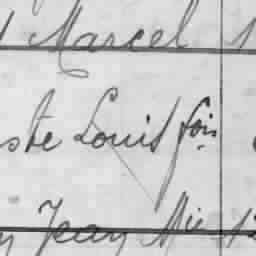 Marcel
ste Louis fois
Jean Mie